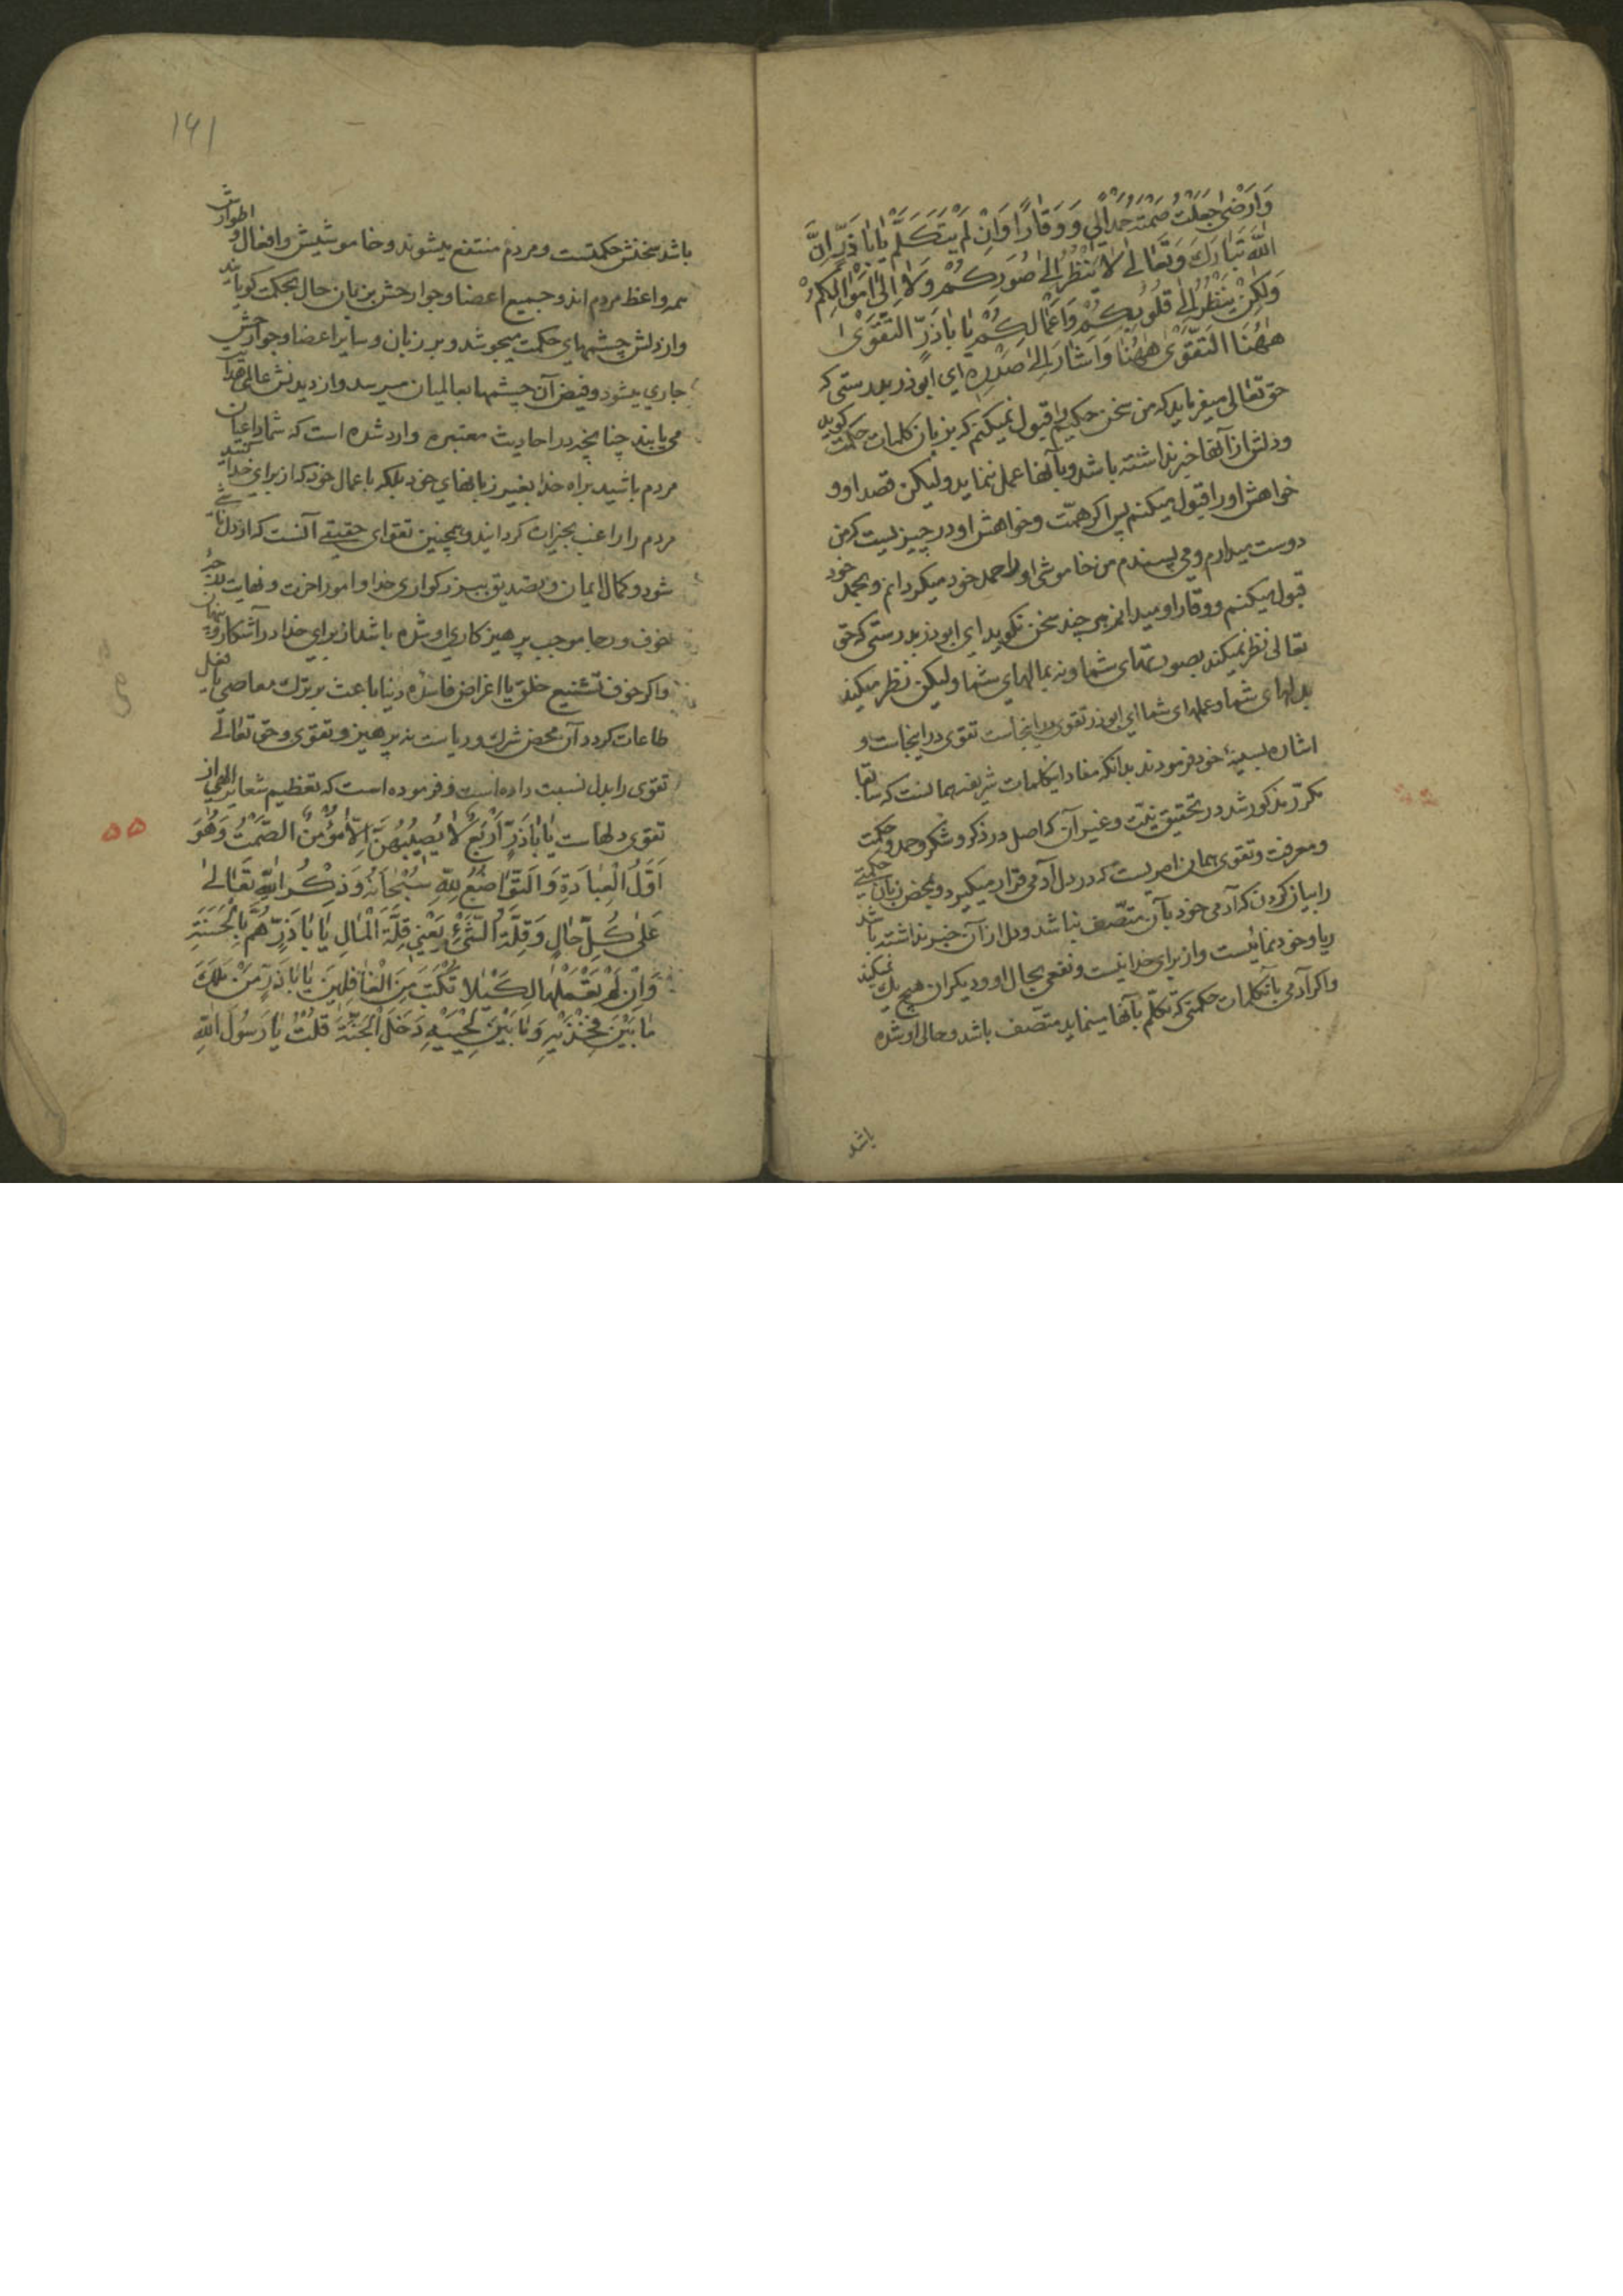 وَاَرْضیٰ جَعَلْتُ صَمْتَهُ حَمْدًا لِی وَ وَقَارًا وَاِنْ لَمْ یَتَکَلَّمْ یٰا بٰا ذَرٍّ اِنَّ
اللّٰهَ تَبٰارَكَ وَ تَعٰالیٰ لٰا یَنْظُرُ اِلیٰ صُوَرِکُمْ وَلٰا اِلیٰ اَمْوٰالِکُمْ
وَلٰکِنْ یَنْظُرُ اِلیٰ قُلُوبِکُمْ وَاَعْمٰالِکُمْ یٰا بٰا ذَرٍّ التَّقْویٰ
هٰهُنَا التَّقْویٰ هٰهُنٰا وَاَشٰارَ اِلیٰ صَدْرِهِ ای ابوذر بدرستی که
حق تعالی میفرماید که من سخن حکیم را قبول نمیکنم که بزبان کلمات حکمت کوید
ودلش از آنها خبر نداشته باشد وبآنها عمل ننماید ولیکن قصد او و
خواهش اورا قبول میکنم پس اکر همّت وخواهش او در چیزیست که من
دوست میدارم ومی پسندم من خاموشی اورا حمد خود میکردانم وبحمد خود
قبول میکنم ووقار او میدانم هر چند سخن نکوید ای ابوذر بدرستی که حق
تعالی نظر نمیکند بصورتهای شما ونه بمالهای شما ولیکن نظر میکند
بدلهای شما وعملهای شما ای ابوذر تقوی در اینجاست تقوی در اینجاست و
اشاره بسینهٔ خود فرمودند بدانکه مفاد اینکلمات شریفه همانست که سابقا
مکرّر مذکور شد در تحقیق نیّت وغیر آن که اصل در ذکر وشکر وحمد وحکمت
ومعرفت وتقوی همان امریست که در دل آدمی قرار میکیرد وبمحض زبان حکمتی
را بیان کردن که آدمی خود بآن متّصف نباشد ودل از آن خبر نداشته باشد
ریا وخودنمائیست واز برای خدا نیست ونفعی بحال او ودیکران هیچ یك نمیکند
واکر آدمی بآنکلمات حکمتی که تکلّم بآنها مینماید متّصف باشد وحالی او شده
باشد
۱۶۱
باشد سخنش حکمتست ومردم منتفع میشوند وخاموشیش وافعال و اطوارش
همه واعظ مردم اند وجمیع اعضا وجوارحش بزبان حال بحکمت کویایند
واز دلش چشمهای حکمت میجوشد وبر زبان وسایر اعضا وجوارحش
جاری میشود وفیض آن چشمها بعالمیان میرسد واز دیدنش عالمی هدایت
می یابند چنانچه در احادیث معتبره وارد شده است که شما داعیان
مردم باشید براه خدا بغیر زبانهای خود بلکه باعمال خود که از برای خدا کنید
مردم را راغب بخیرات کردانید وهمچنین تقوای حقیقی آنست که از دل ناشی
شود وکمال ایمان وتصدیق ببزرکواری خدا وامور آخرت ونهایت مرتبه
خوف ورجا موجب پرهیزکاری او شده باشد از برای خدا در آشکار و پنهان
واکر خوف تشنیع خلق یا اغراض فاسدهٔ دنیا باعث بر ترك معاصی یا فعل
طاعات کردد آن محض شرك وریاست نه پرهیز وتقوی وحق تعالی
تقوی را بدل نسبت داده است وفرموده است که تعظیم شعایر الهی از
تقوی دلهاست یٰا بٰا ذَرٍّ اَرْبَعٌ لٰا یُصِیبُهُنَّ اِلّٰا مُؤْمِنٌ الصَّمْتُ وَهُوَ
اَوَّلُ الْعِبٰادَةِ وَالتَّوٰاضُعُ لِلّٰهِ سُبْحٰانَهُ وَذِکْرُ اللّٰهِ تَعٰالیٰ
عَلیٰ کُلِّ حٰالٍ وَقِلَّةُ الشَّیْءِ یَعْنِی قِلَّةَ الْمٰالِ یٰا بٰا ذَرٍّ هُمَّ بِالْحَسَنَةِ
وَاِنْ لَمْ تَعْمَلْهٰا لِکَیْلٰا تُکْتَبَ مِنَ الْغٰافِلِینَ یٰا بٰا ذَرٍّ مَنْ مَلَكَ
مٰا بَیْنَ فَخِذَیْهِ وَمٰا بَیْنَ لِحْیَیْهِ دَخَلَ الْجَنَّةَ قُلْتُ یٰا رَسُولَ اللّٰهِ